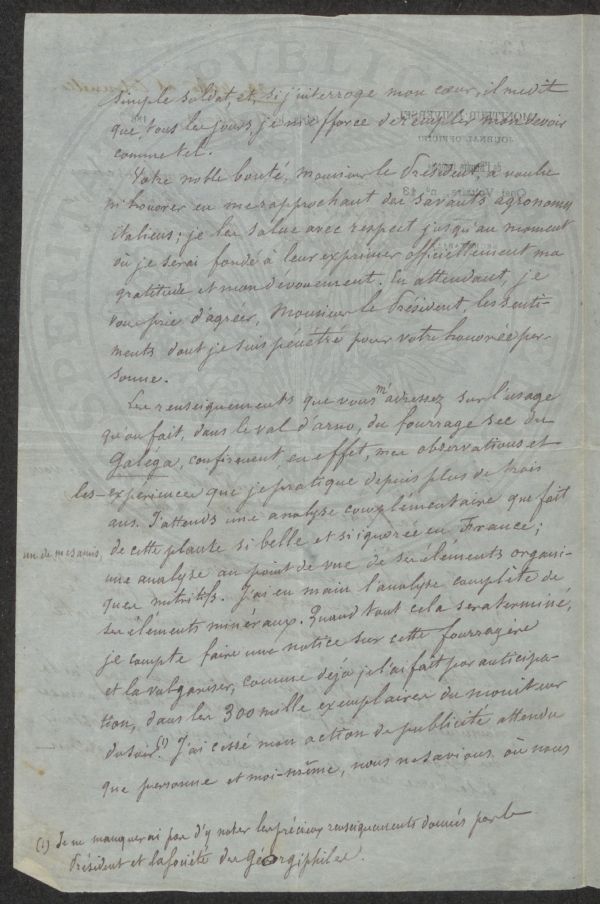 simple soldat, et, si j'interroge mon cœur, il me dit
que tous les jours je m'efforce de remplir mon devoir
comme tel.
Votre noble bonté, Monsieur le Président, a voulu
m'honorer en me rapprochant des savants agronomes
italiens; je les salue avec respect jusqu'au moment
où je serai fondé à leur exprimer officiellement ma
gratitude et mon dévouement. En attendant, je
vous prie d'agréer, Monsieur le Président, les senti-
ments dont je suis pénétré pour votre honorée per-
sonne.
Les renseignements que vous m'adressez sur l'usage
qu'on fait, dans le val d'arno, du fourrage sec du
Galéga, confirment, en effet, mes observations et
les expériences que je pratique depuis plus de trois
ans. J'attends une analyse complémentaire que fait
un de mes amis, de cette plante si belle et si ignorée en France;
une analyse au point de vue de ses éléments organi-
ques nutritifs. J'ai en main l'analyse complète de
ses éléments minéraux. Quand tout cela sera terminé,
je compte faire une notice sur cette fourragère
et la vulgariser, comme déjà je l'ai fait par anticipa-
tion, dans les 300 mille exemplaires du moniteur
du soir (1). J'ai cessé mon action de publicité attendu
que personne et moi-même, nous ne savions où nous
(1) Je ne manquerai pas d'y noter les précieux renseignements donnés par le
Président et la Société des Géorgiphiles.